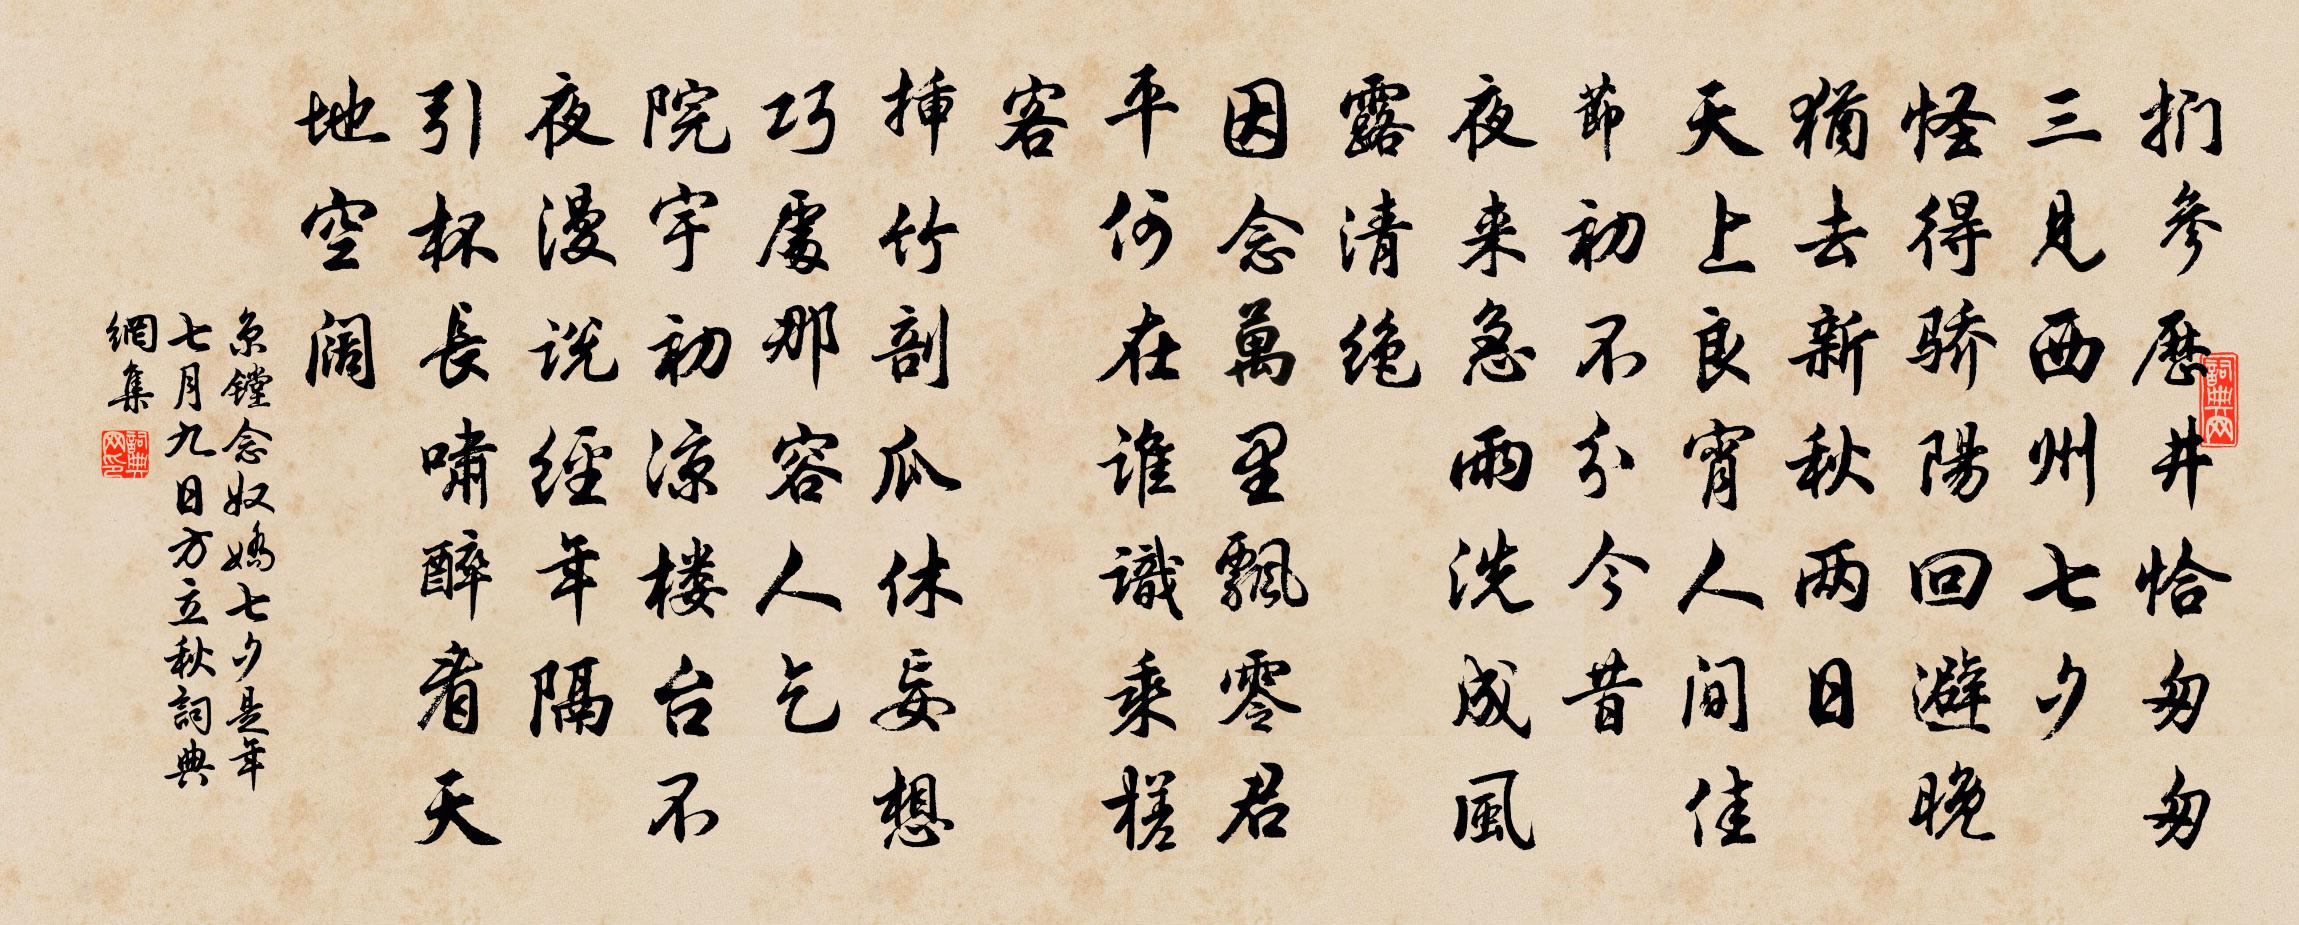 捫參歷井恰匆匆
三見西州七夕
怪得骄陽回避晚
猶去新秋两日
天上良宵人间佳
節初不分今昔
夜来急雨洗成風
露清绝
因念萬里飄零君
平何在谁識乘槎
客
插竹剖瓜休妄想
巧處那容人乞
院宇初凉楼台不
夜漫说經年隔
引杯長嘯醉看天
地空阔
京镗念奴嬌七夕是年
七月九日方立秋詞典
網集
詞典网
詞典网印